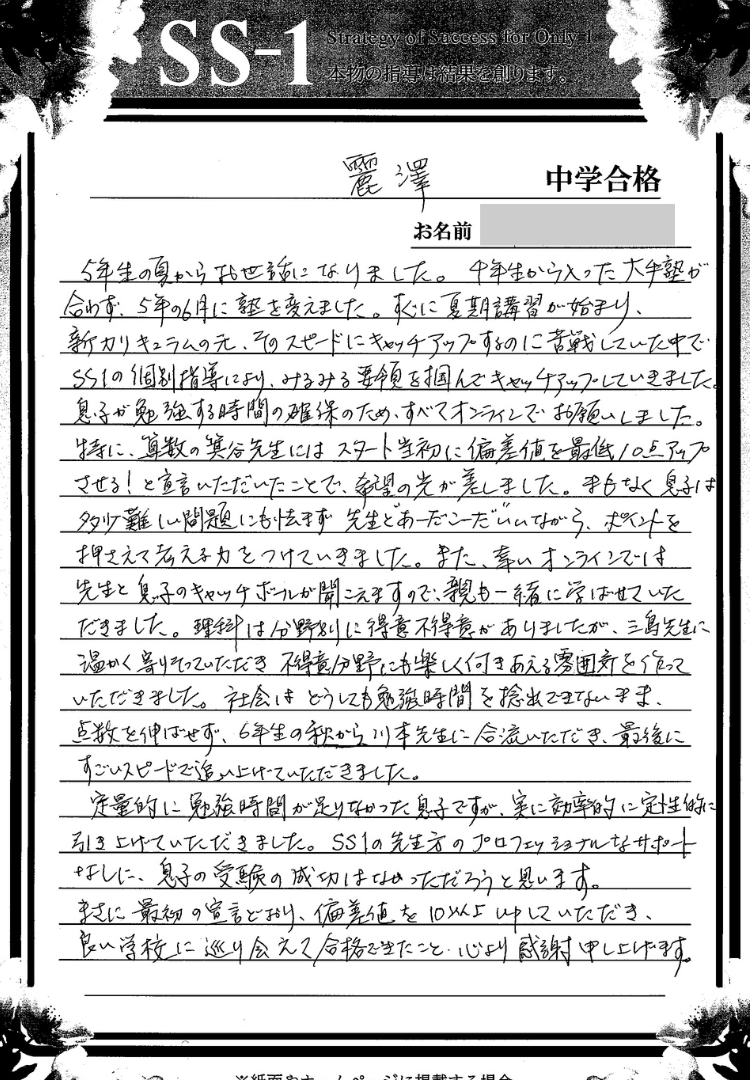 SS-1
Strategy of Success for Only 1
本物の指導は結果を創ります。
麗澤 中学合格
お名前
5年生の夏からお世話になりました。4年生から入った大手塾が
合わず、5年の6月に塾を変えました。すぐに夏期講習が始まり、
新カリキュラムの元、そのスピードにキャッチアップするのに苦戦していた中で
SS1の個別指導により、みるみる要領を掴んでキャッチアップしていきました。
息子が勉強する時間の確保のため、すべてオンラインでお願いしました。
特に、算数の箕谷先生にはスタート当初に偏差値を最低10点アップ
させる!と宣言いただいたことで、希望の光が差しました。まもなく息子は
多少難しい問題にも怯まず先生とあーだこーだいいながら、ポイントを
押さえて考える力をつけていきました。また、幸いオンラインでは
先生と息子のキャッチボールが聞こえますので、親も一緒に学ばせていた
だきました。理科は分野別に得意不得意がありましたが、三島先生に
温かく寄りそっていただき不得意分野にも楽しく付きあえる雰囲気を作って
いただきました。社会はどうしても勉強時間を捻出できないまま、
点数を伸ばせず、6年生の秋から川本先生に合流いただき、最後に
すごいスピードで追い上げていただきました。
定量的に勉強時間が足りなかった息子ですが、実に効率的に定性的に
引き上げていただきました。SS1の先生方のプロフェッショナルなサポート
なしに、息子の受験の成功はなかっただろうと思います。
まさに最初の宣言どおり、偏差値を10以上UPしていただき、
良い学校に巡り会えて合格できたこと、心より感謝申し上げます。
※紙面やホームページに掲載する場合